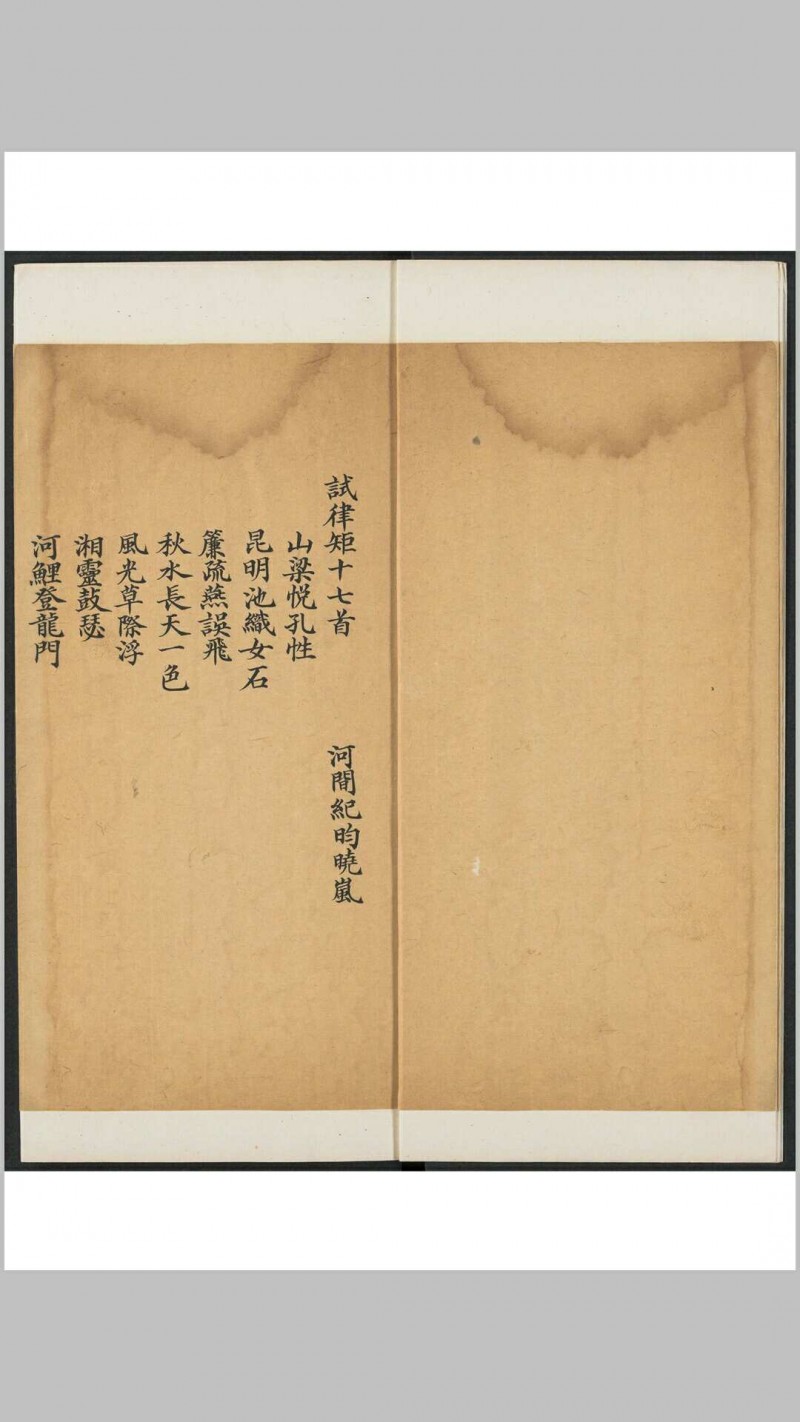 試律矩十七首
河間紀昀曉嵐
山梁悅孔性
昆明池織女石
簾疏燕誤飛
秋水長天一色
風光草際浮
湘靈鼓瑟
河鯉登龍門